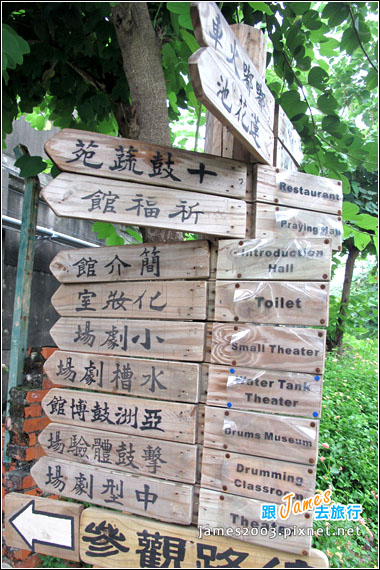 嘟嘟火車
蓮花池
十鼓蔬苑
Restaurant
祈福館
Praying Hall
簡介館
Introduction
Hall
化妝室
Toilet
小劇場
Small Theater
水槽劇場
Water Tank
Theater
亞洲鼓博館
Drums Museum
擊鼓體驗場
Drumming
Classroom
中型劇場
Theater
參觀路線
跟James去旅行
james2003.pixnet.net